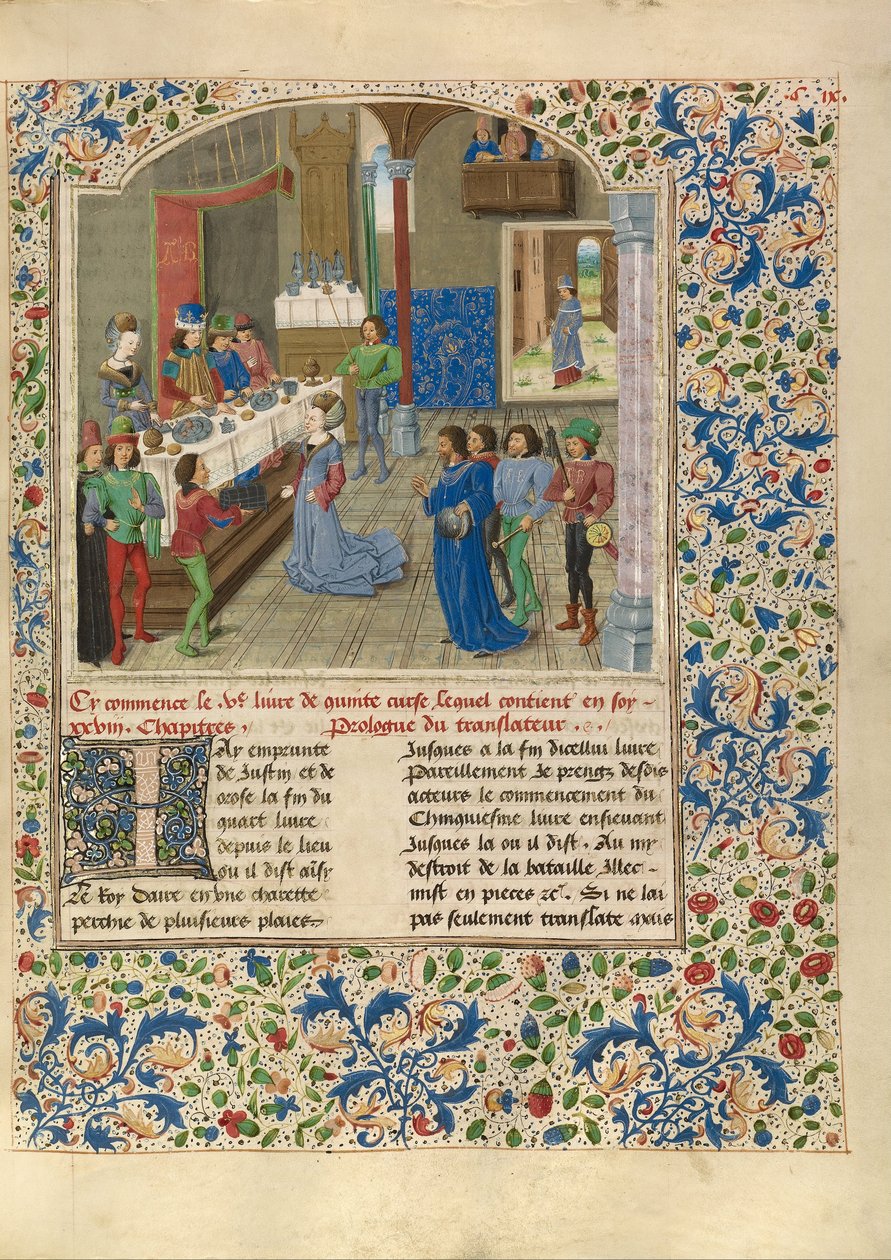 C IX.
Cy commence le .ve. liure de quinte curse, lequel contient en soy
xxviij. Chapitres, Prologue du translateur .
Iay emprunte
de Justin et de
orose la fin du
quart liure
depuis le lieu
ou il dist aisy
Le Roy daire en vne charette
perchie de pluiseurs plaies
Jusques a la fin dicellui liure
Pareillement Je prengz desdis
acteurs le commencement du
Chinquiesme liure ensieuant
Jusques la ou il dist. Au my
destroit de la bataille Illec
mist en pieces &c. Si ne lai
pas seulement translate mais